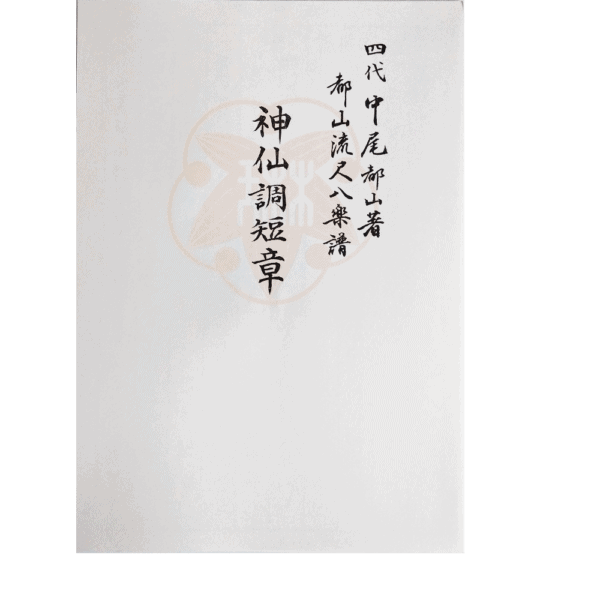 四代 中尾都山著
都山流尺八楽譜
神仙調短章